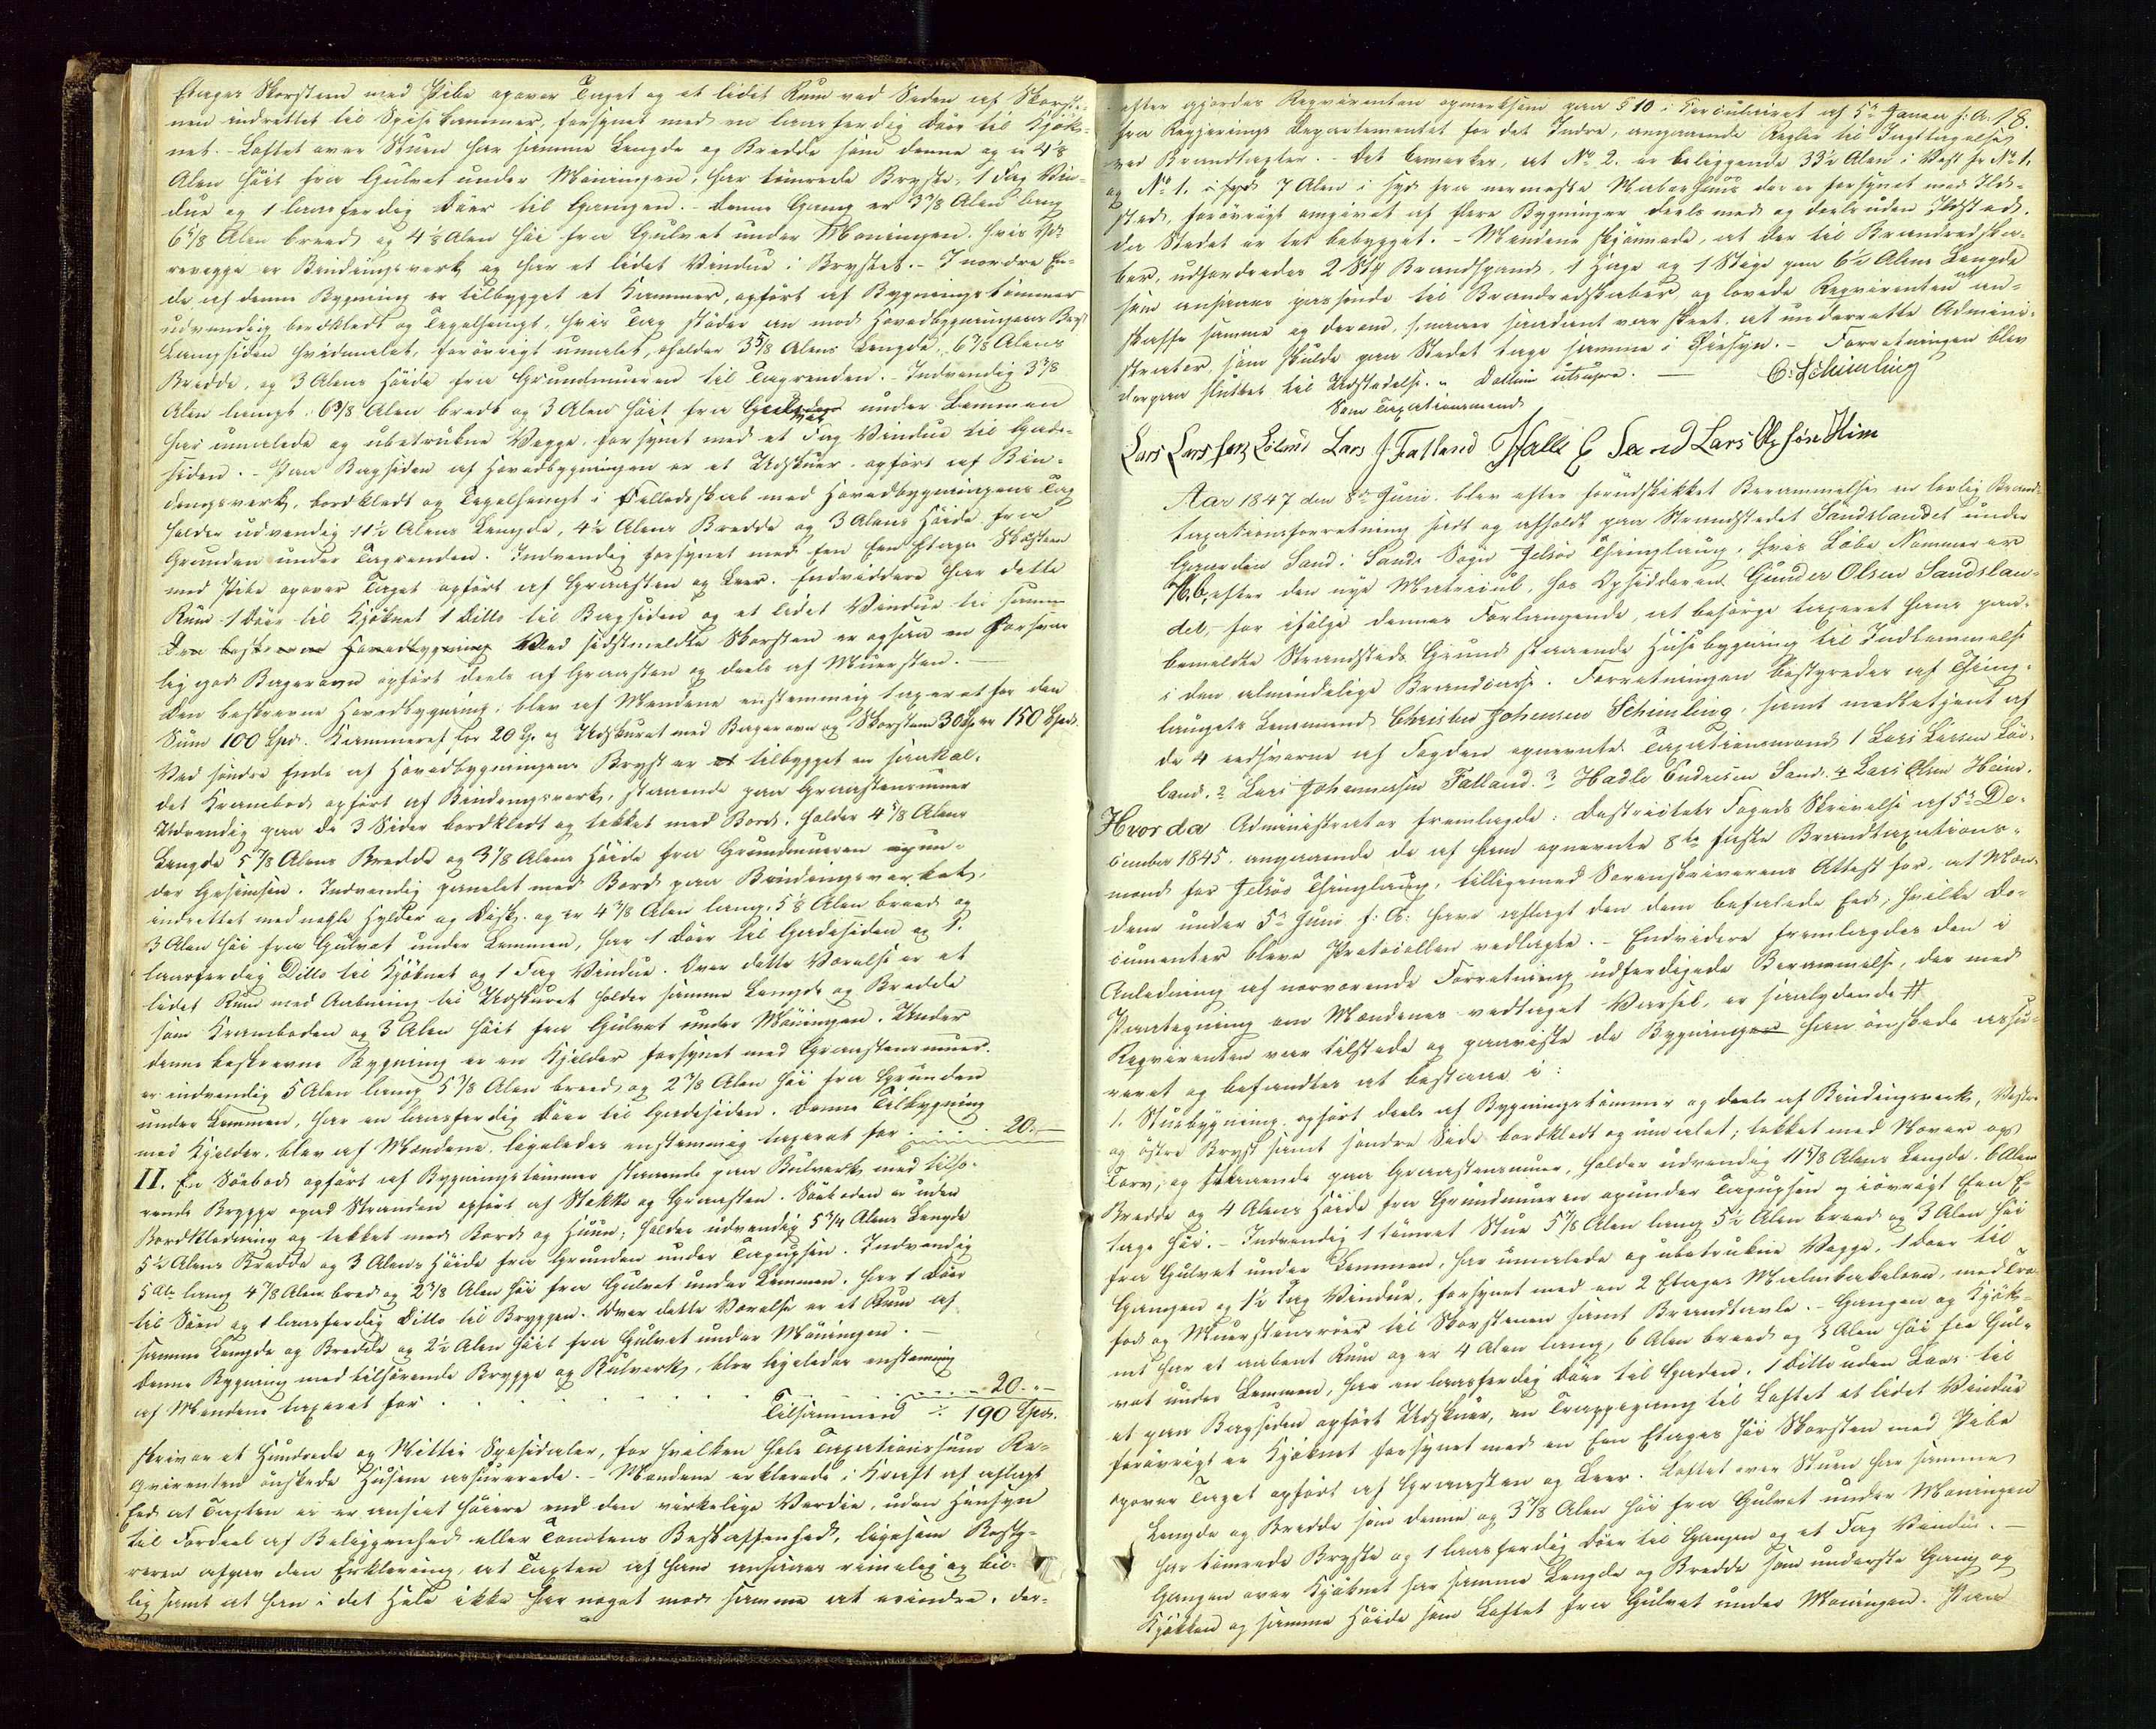 Etages Skorsteen med Pibe opover Taget og et lidet Rum ved Siden af Skorste-
nen indrettet til Spisekammer, forsynet med en laasferdig Döer til Kjök-
net. - Loftet over Stuen har samme Lengde og Bredde som denne og er 4 1/8
Alen höit fra Gulvet under Möningen, har tömrede Bryste, 1 Fag Vin-
due og 1 laasferdig Döer til Gangen. - Denne Gang er 3 7/8 Alen lang
6 5/8 Alen breed og 4 1/8 Alen höi fra Gulvet under Moningen, hvis
revegge er Bindingsverk og har et lidet Vindue i Brystet. - I nordre En-
de af denne Bygning er tilbygget et Kammer, opfört af Bygningstömmer
udvendig bordkledt og Tegelhengt, hvis Tag stöder an mod Hovedbygningens Bryst
Langsiden hvidmalet, forövrigt umalet, holder 3 5/8 Alens Lengde, 6 7/8 Alens
Bredde, og 3 Alens Höide fra Grundmuren til Tagrenden. - Indvendig 3 3/8
Alen langt, 6 3/8 Alen bredt og 3 Alen höit fra Gulvet under Lemmen
har umalede og ubetrukne Vegge, forsynet med et Fag Vindue til Gade-
siden. - Paa Bagsiden af Hovedbygningen er et Udskuer, opfört af Bin-
dingsverk, bordkledt og Tegelhengt i Fælledsskab med Hovedbygningens Tag
holder udvendig 11 1/2 Alens Lengde, 4 1/2 Alens Bredde og 3 Alens Höide fra
Grunden under Tagrenden. Indvendig forsynet med Een Een Etages Skorsteen
med Pibe opover Taget opfört af Graasteen og Leer. Endviddere har dette
Rum 1 Döer til Kjöknet 1 Ditto til Bagsiden og et lidet Vindue til samme
Den beskrevne Hovedbygning Ved sidstmeldte Skorsteen er ogsaa en forsvar
lig god Bagerovn opfört deels af Graasten og deels af Muursten. -
Den beskrevne Hovedbygning, blev af Mendene enstemmig taxeret for den
Sum 100 Spd. Kammeret for 20 Sp. og Udskuret med Bagerovn og Skorsteen 30 Sp. er 150 Spd.
Ved söndre Ende af Hovedbygningens Bryst er et tilbygget en saakal-
det Krambod opfört af Bindingsverk, staaende paa Graasteensmuur
Udvendig paa de 3 Sider bordkledt og tekket med Bord, holder 4 5/8 Alens
Lengde 5 7/8 Alens Bredde og 3 7/8 Alens Höide fra Grundmuren op un-
der Gesimsen. Indvendig panelet med Bord paa Bindingsverket,
indrettet med nogle Hylder og Disk, og er 4 3/8 Alen lang, 5 1/8 Alen breed og
3 Alen höi fra Gulvet under Lemmen, har 1 Döer til Gadesiden og 1
laasferdig Ditto til Kjöknet og 1 Fag Vindue. Over dette Værelse er et
lidet Rum med Aabning til Udskuret holder samme Lengde og Bredde
som Kramboden og 3 Alen höit fra Gulvet under Möningen. Under
denne beskrevne Bygning er en Kjelder forsynet med Graasteensmuur.
er indvendig 5 Alen lang 5 3/8 Alen breed og 2 7/8 Alen höi fra Grunden
under Lemmen, har en laasferdig Döer til Gadesiden. Denne Tilbygning
med Kjelder, blev af Mendene, ligeledes enstemmig taxeret for . . . . . 20. -
II. En Söebod opfört af Bygningstömmer staaende paa Bulverk med tilhö-
rende Brygge opad Stranden opfört af Stokke og Graasten. Söeboden er uden
Bordkledning og tekket med Bord og Huun; holder udvendig 5 3/4 Alens Lengde
5 1/2 Alens Bredde og 3 Alens Höide fra Grunden under Tagupsen. Indvendig
5 Al: lang 4 7/8 Alen bred og 2 7/8 Alen höi fra Gulvet under Lemmen, har 1 Döer
til Söen og 1 laasferdig Ditto til Bryggen. Over dette Værelse er et Rum af
samme Lengde og Bredde og 2 1/2 Alen höit fra Gulvet under Möningen. -
Denne Bygning med tilhörende Brygge og Bulverk, blev ligeledes enstemmig
af Mendene taxeret for . . . . . . . . . . 20. " -
Tilsammen ./. 190 Spd.
skriver et Hundrede og Nitti Spesidaler, for hvilken hele Taxationssum Re-
qvirenten önskede Husene assurerede. - Mendene erklerede i Kraft af aflagt
Eed at Taxten ei er ansat höiere end den virkelige Verdie, uden Hensyn
til Fordeel af Beliggenhed eller Tomtens Beskaffenhed, ligesom Besty-
reren afgav den Erklering, at Taxten af ham ansaaes rimelig og bil-
lig samt at han i det Hele ikke har noget mod samme at erindre, der-
efter gjordes Reqvirenten opmerksom paa § 10 i Circulairet af 5te Januar f: A: 18.
fra Regjerings Departementet for det Indre, angaaende Regler til Iagttagelse
ved Brandtaxter. - Det bemerkes, at No 2. er beliggende 33 1/2 Alen i Vest fr No 1.
og No 1. i Syd 7 Alen i Syd fra nermeste Naboehuus der er forsynet med Ild-
sted, forövrigt omgivet af flere Bygninger deels med og deels uden Ildsted,
da Stedet er tet bebygget. - Mendene skjönnede, at der til Brandredska-
ber, udfordredes 2 Stk Brandspand, 1 Hage og 1 Stige paa 6 1/2 Alens Lengde
som ansaaes passende til Brandredskaber og lovede Reqvirenten at an-
skaffe samme og derom, snarer saadant var skeet, at underrette Admini-
strator, som skulde paa Stedet tage samme i Öiesyn. - Forretningen blev
derpaa sluttet til Udstedelse. " Datum utsupra. - C. Schimling
Som Taxationsmend
Lars Larssen Löland Lars J. Fatland Halle E Sand Lars Olssön Hiim
Aar 1847 den 8de Juni, blev efter forudskikket Berammelse en lovlig Brand-
taxationsforretning sat og afholdt paa Strandstedet Sandslandet under
Gaarden Sand i Sands Sogn Jelsöe Thinglaug, hvis Löbe Nummer er
N. 6, efter den nye Matricul, hos Opsidderen Gunder Olsen Sandslan-
det, for ifölge dennes Forlangende, at besörge taxeret hans paa
bemeldte Strandsteds Grund staaende Huusebygning til Indlemmelse
i den almindelige Brandcasse. Forretningen bestyredes af Thing-
laugets Lensmand Christen Johansen Schimling, samt medbetjent af
de 4 eedsvorne af Fogden opnevnte Taxationsmend 1 Lars Larsen Lö-
land. 2 Lars Johannessen Fatland. 3 Hadle Endresen Sand. 4 Lars Olsen Heim.
Hvorda Administrator fremlagde: Distrietets Fogeds Skrivelse af 5te De-
cember 1845 angaaende de af ham opnevnte 8te faste Brandtaxations-
mend for Jelsöe Thinglaug, tilligemed Sorenskriverens Attest for, at Mæn-
dene under 5te Juni f: A: have aflagt den dem befalede Eed, hvilke Do-
cumenter bleve Protocollen vedlagte. - Endvidere fremlagdes den i
Anledning af nærværende Forretning udferdigede Berammelse, der med
Paategning om Mændenes vedtaget Varsel, er saalydende #
Reqvirenten var tilstede og paaviste de Bygninger han önskede assu-
reret og befandtes at bestaae i:
1. Stuebygning opfört deels af Bygningstömmer og deels af Bindingsverk, Vestre
og östre Bryst samt söndre Side bordkledt og umalet; tekket med Never og
Torv, og staaende paa Graasteensmuur, holder udvendig 11 5/8 Alens Lengde, 6 Alens
Bredde og 4 Alens Höide fra Grundmuren opunder Tagupsen og iövrigt Een E-
tage höi. - Indvendig 1 tömret Stue 5 7/8 Alen lang 5 1/2 Alen breed og 3 Alen höi
fra Gulvet under Lemmen, har umalede og ubetrukne Vegge, 1 Döer til
Gangen og 1 1/2 Fag Vindue, forsynet med en 2 Etages Malmkakelovn, med Tre-
fod og Muurstensrör til Skorstenen samt Brandtavle. - Gangen og Kjök-
net har et aabent Rum og er 4 Alen lang, 6 Alen breed og 3 Alen höi fra Gul-
vet under Lemmen, har en laasferdig Döer til Gaden, 1 Ditto uden Laas til
et paa Bagsiden opfört Udskuer, en Trappegang til Loftet et lidet Vindue
forövrigt er Kjöknet forsynet med en Een Etages höi Skorsten med Pibe
opover Taget opfört af Graasten og Leer. Loftet over Stuen har samme
Lengde og Bredde som denne og 3 7/8 Alen höi fra Gulvet under Moningen
har tömrede Bryste og 1 laasferdig Döer til Gangen og et Fag Vindue. -
Gangen over Kjöknet har samme Lengde og Bredde som underste Gang og
Kjökken og samme Höide som Loftet fra Gulvet under Moningen. Paa